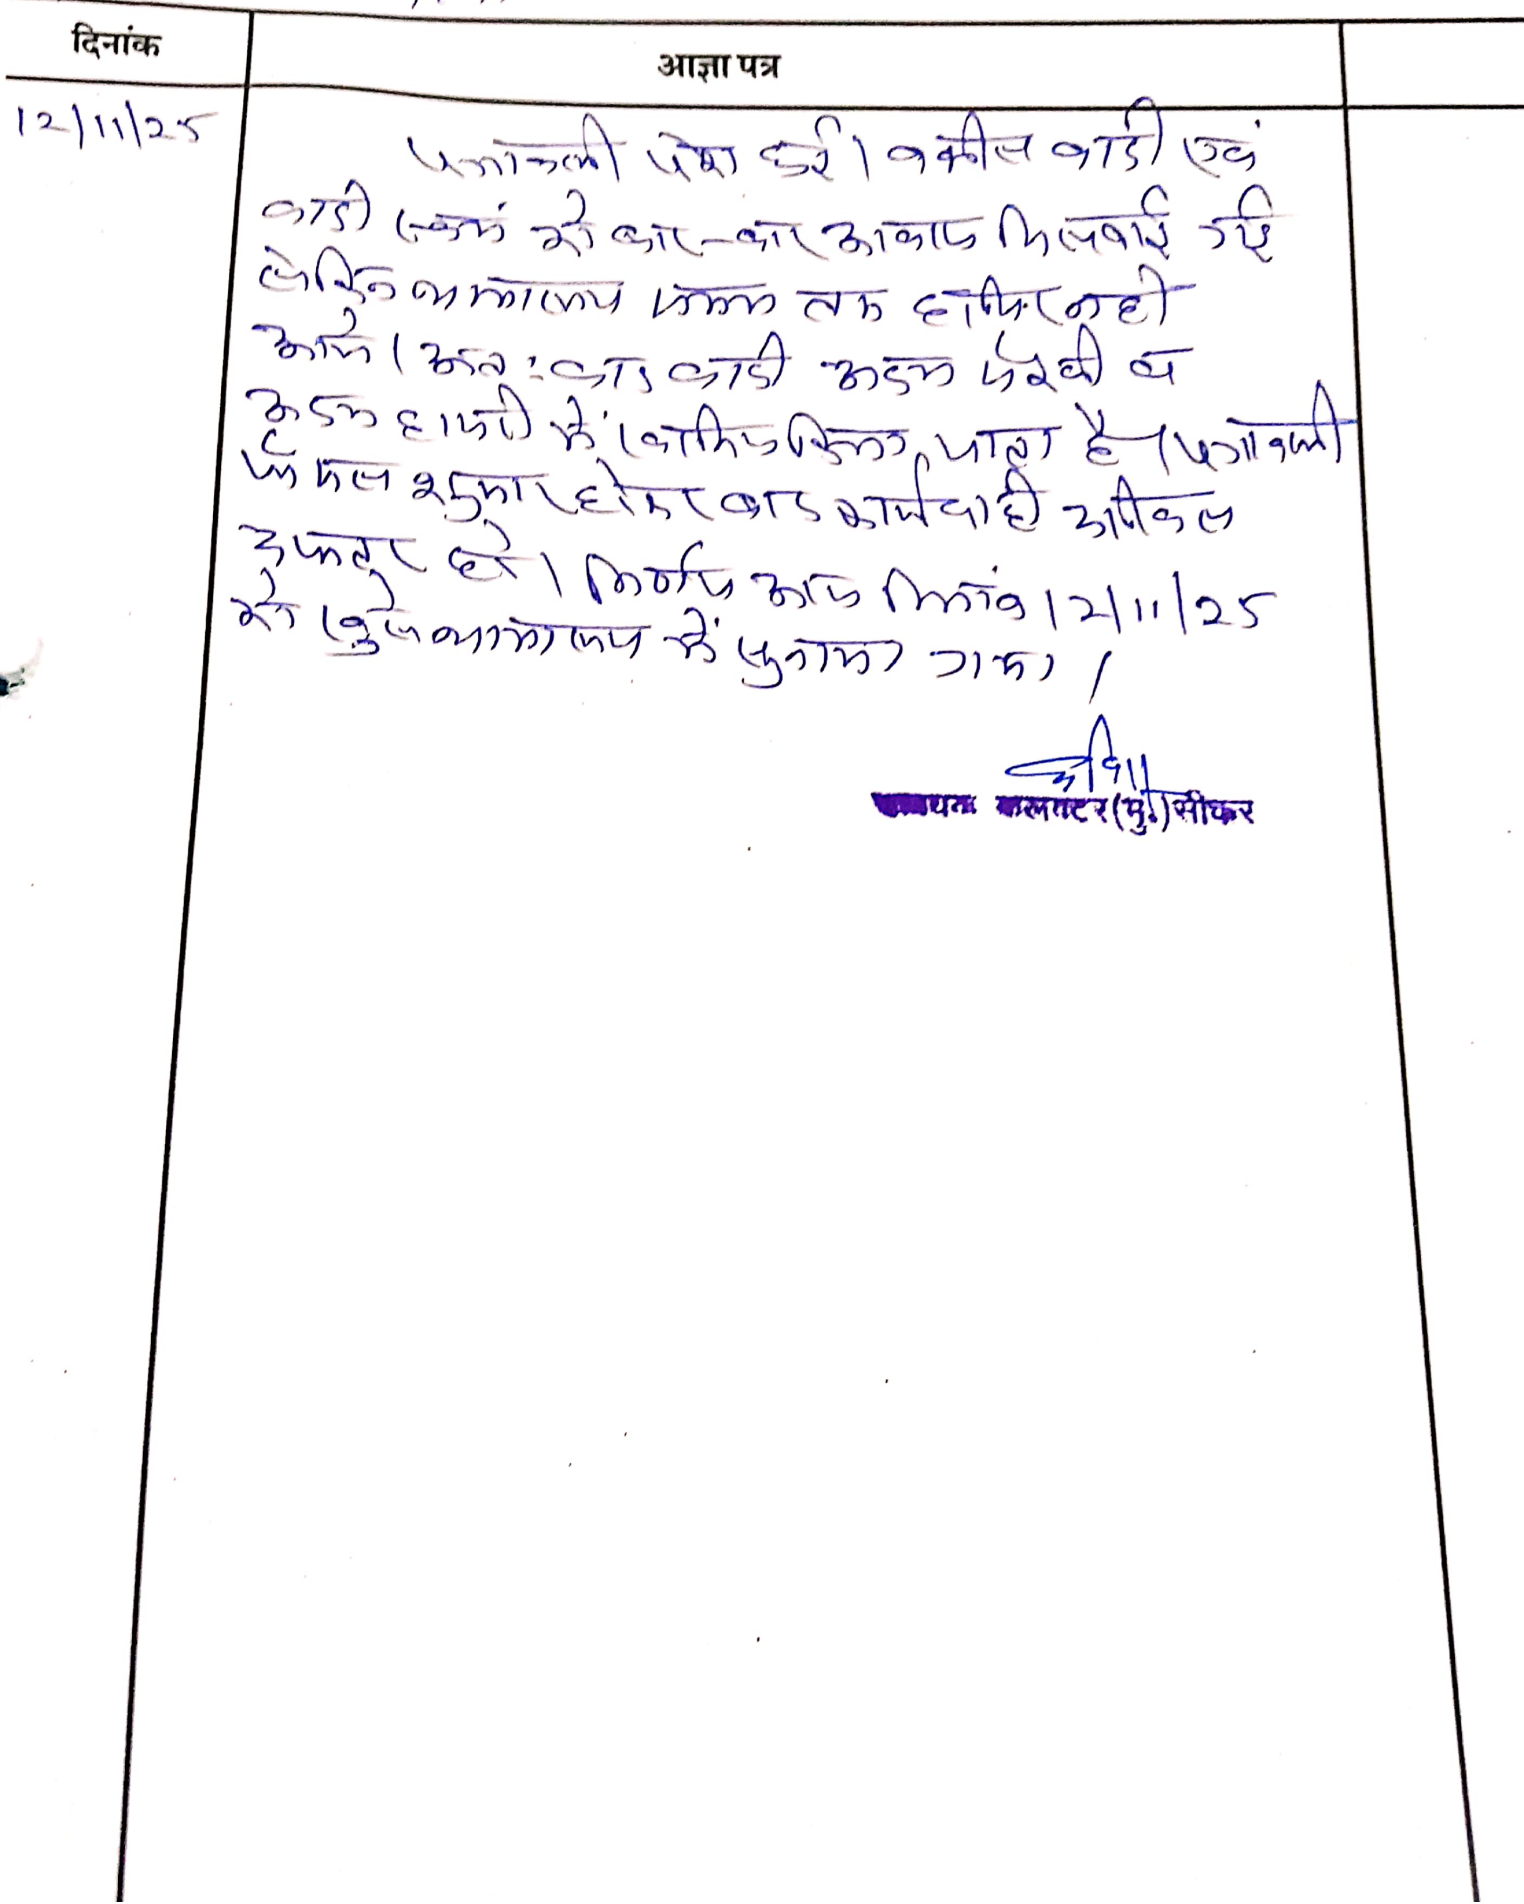 दिनांक
आज्ञा पत्र
12/11/25
पत्रावली पेश हुई। वकील वादी एवं
वादी स्वयं को बार-बार आवाज दिलवाई गई
लेकिन न्यायालय समय तक हाजिर नहीं
आये। अतः वाद वादी अदम पैरवी व
अदम हाजरी में खारिज किया जाता है। पत्रावली
फैसल शुमार होकर बाद कार्यवाही दाखिल
दफ्तर हो। निर्णय आज दिनांक 12/11/25
को खुले न्यायालय में सुनाया गया।
कलक्टर (मु.) सीकर